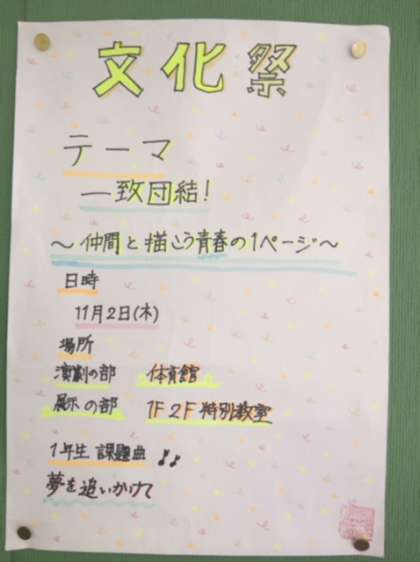 文化祭
テーマ
一致団結！
～仲間と描こう青春の1ページ～
日時
11月2日(木)
場所
演劇の部 体育館
展示の部 1F 2F 特別教室
1年生 課題曲
夢を追いかけて